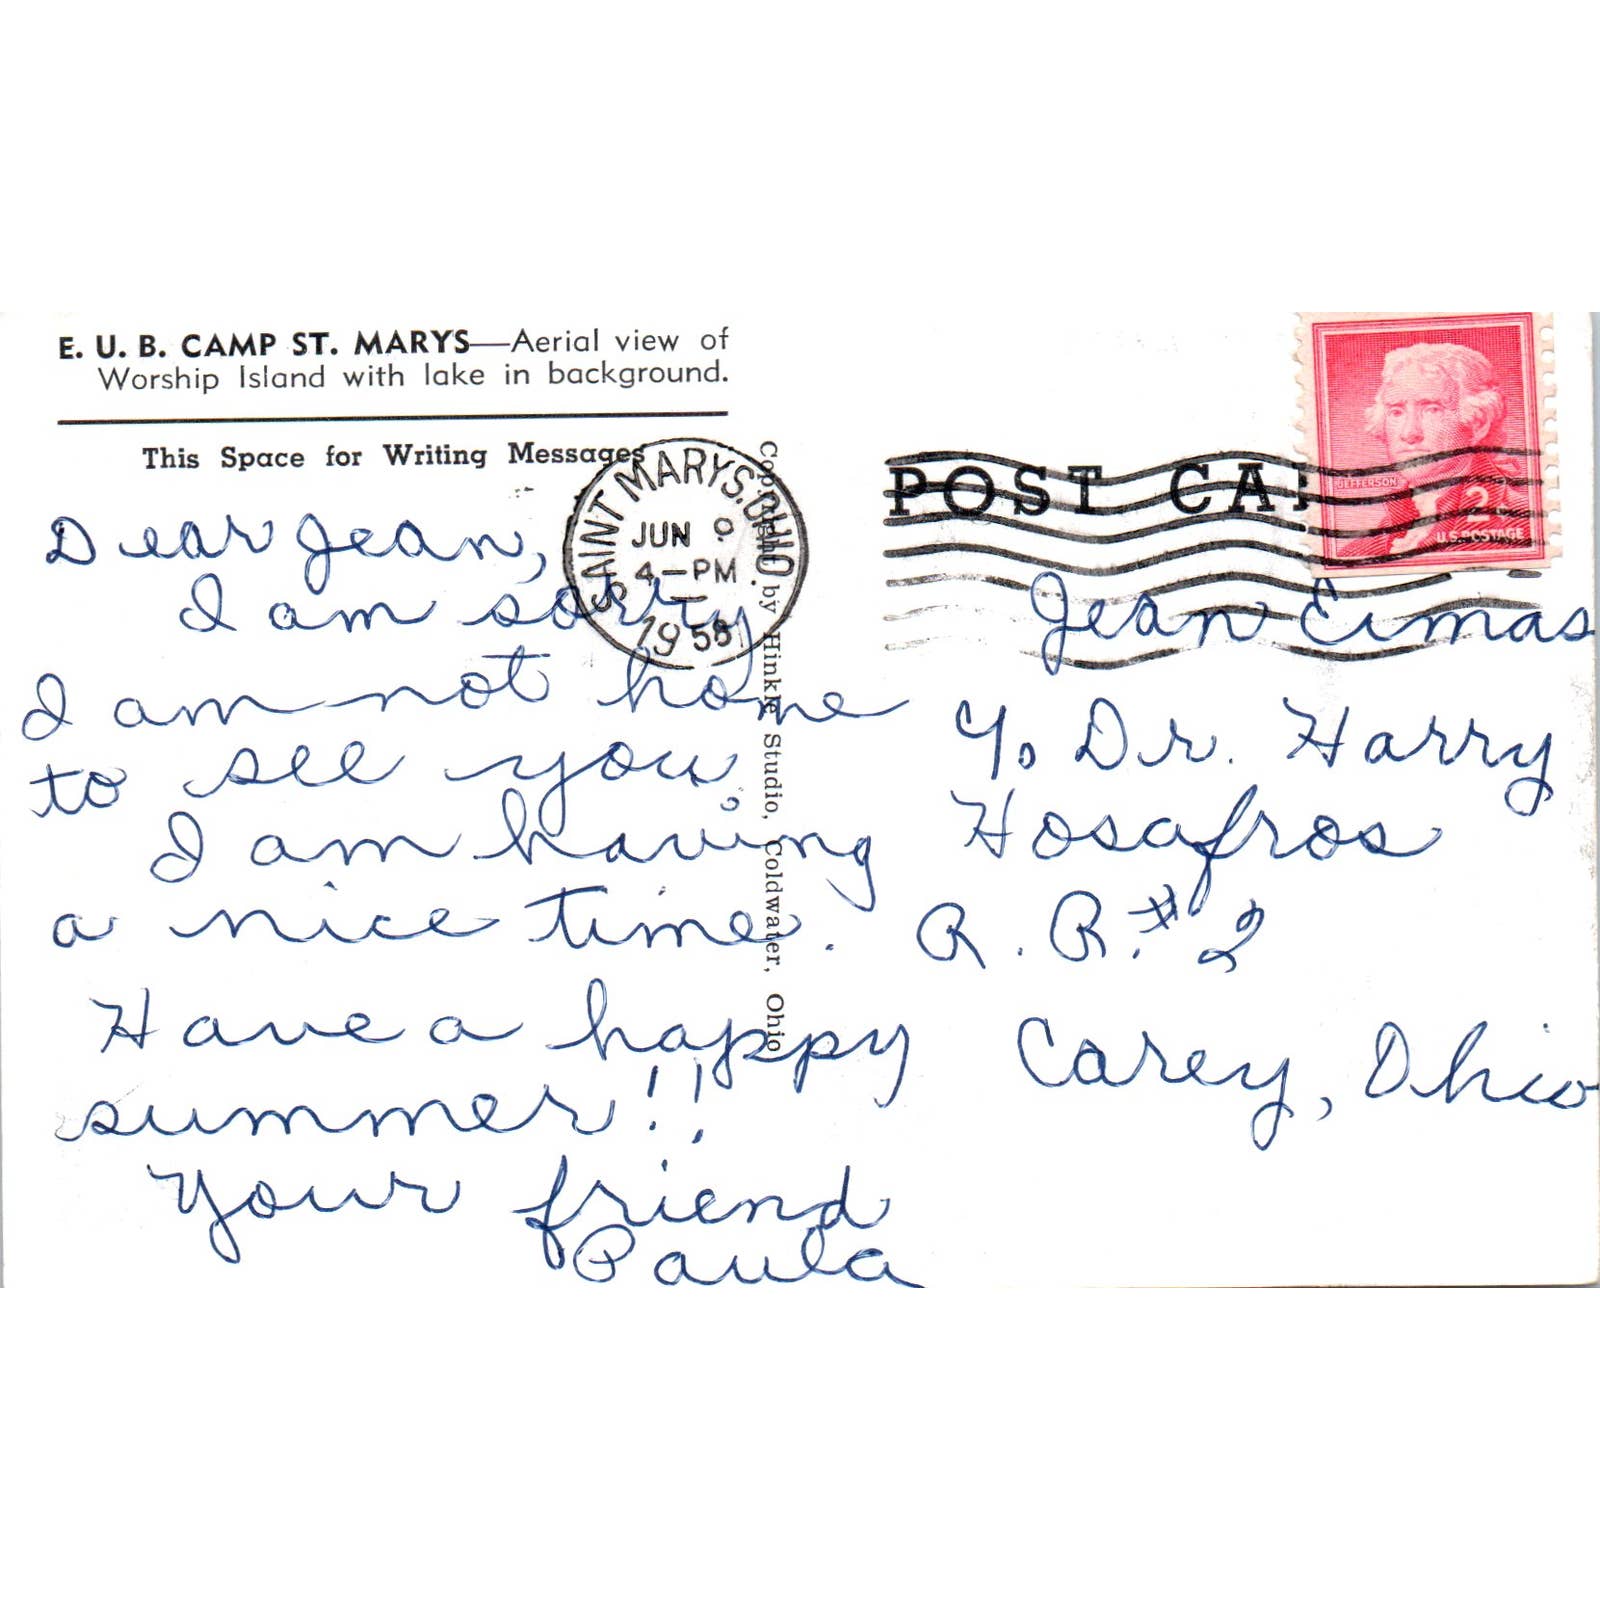 E. U. B. CAMP ST. MARYS—Aerial view of
Worship Island with lake in background.
This Space for Writing Messages
Dear Jean,
I am sorry
I am not home
to see you.
I am having
a nice time.
Have a happy
summer!!
Your friend
Paula
SAINT MARYS, OHIO.
JUN 9
4-PM
1958
Copyright by Hinkle Studio, Coldwater, Ohio
POST CA
JEFFERSON
2
U.S. POSTAGE
Jean Eimas
c/o Dr. Harry
Hosafros
R. R. #2
Carey, Ohio